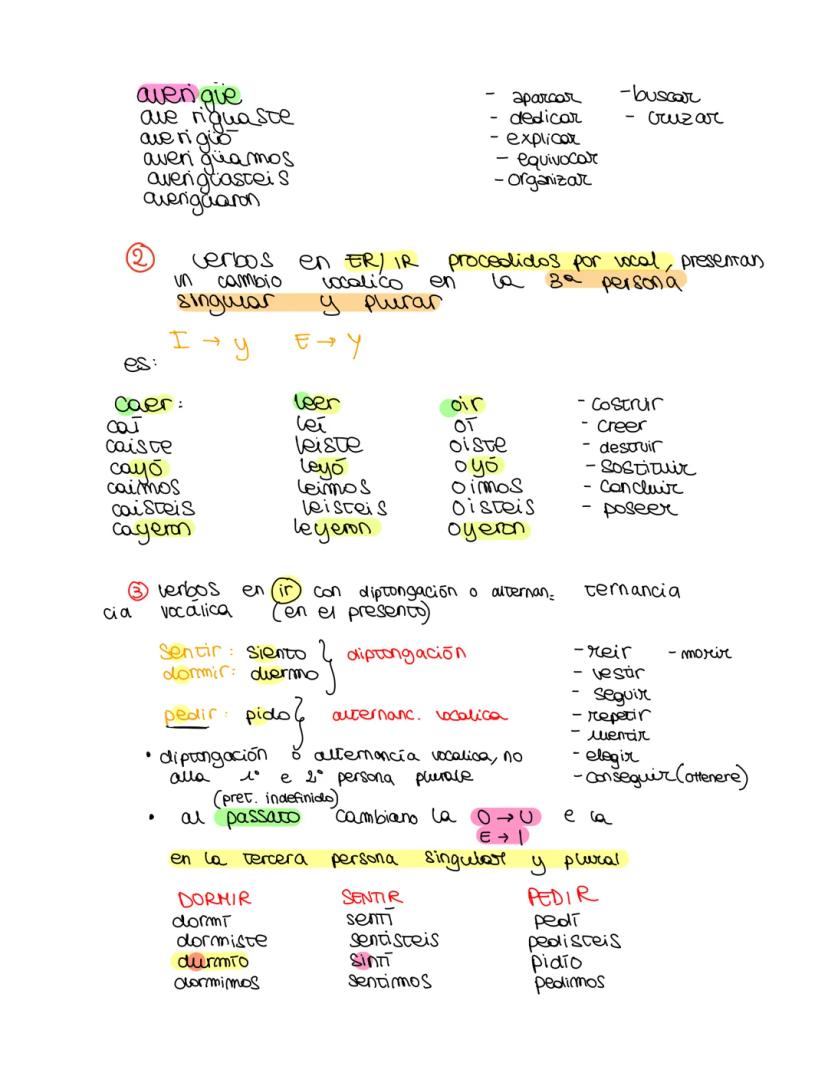 averigüe
ave riguaste
averiguó
averi güamos
averigüasteis
averiguaron
- aparcar
- dedicar
- explicar
- equivocar
- organizar
- buscar
- cruzar
② verbos en ER/IR procedidos por vocal, presentan
un cambio vocalico en la 3ª persona
singular y plurar
I → y E → Y
es:
caer:
caí
caiste
cayó
caimos
caisteis
cayeron
leer
leí
leiste
leyó
leimos
leisteis
leyeron
oir
oí
oiste
oyó
oimos
oisteis
oyeron
- costruir
- creer
- destruir
- sostituir
- concluir
- poseer
③ verbos en ir con diptongación o alternan= ternancia
cia vocálica (en el presento)
sentir: siento } diptongación
dormir: duermo
pedir: pido } alternanc. vocalica
- reir
- vestir
- seguir
- repetir
- mentir
- elegir
- conseguir (ottenere)
- morir
• diptongación o alternancia vocalica, no
alla 1° e 2° persona plurale
(pret. indefinido)
• al passato cambiano la O → U e la
E → I
en la tercera persona singular y plural
DORMIR
dormí
dormiste
durmío
dormimos
SENTIR
sentí
sentisteis
sintí
sentimos
PEDIR
pedí
pedisteis
pidío
pedimos